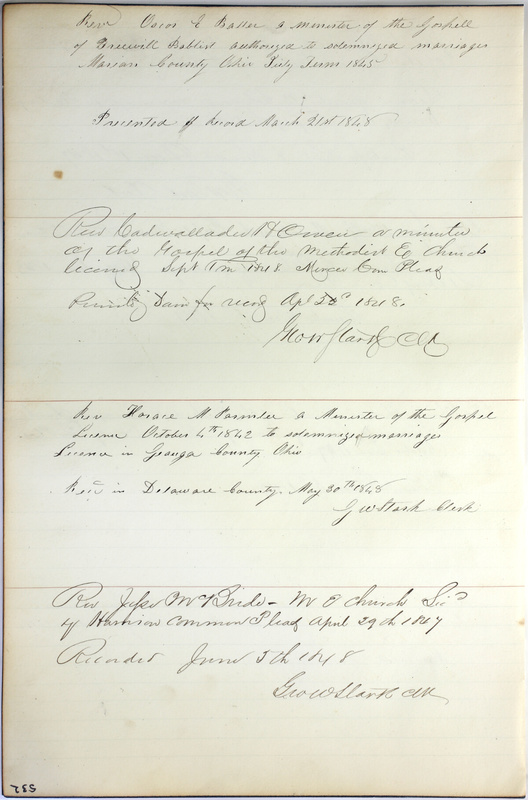 Revd Oscar E Baker a Minister of the Gospell
of Freewill Babtist authorized to solemnized marriages
Marion County Ohio July Term 1845
Presented & Record March 21st 1848
Rev Cadwallader H Owen a minister
of the Gospel of the Methodist E Church
licensed Sept Tm 1848 Mercer Com Pleas
for record Apl 1848.
Geo W Stark Clk
Rev Horace M Parmlee a Minister of the Gospel
License October 4th 1842 to solemnized marriages
License in Geauga County Ohio
Recd in Delaware County. May 30th 1848
G W Stark Clerk
Rev Jesse McBride - M E Church Lic
by Harrison Common Pleas April 29th 1847
Recorded June 5th 1848
Geo W Stark Clk
532